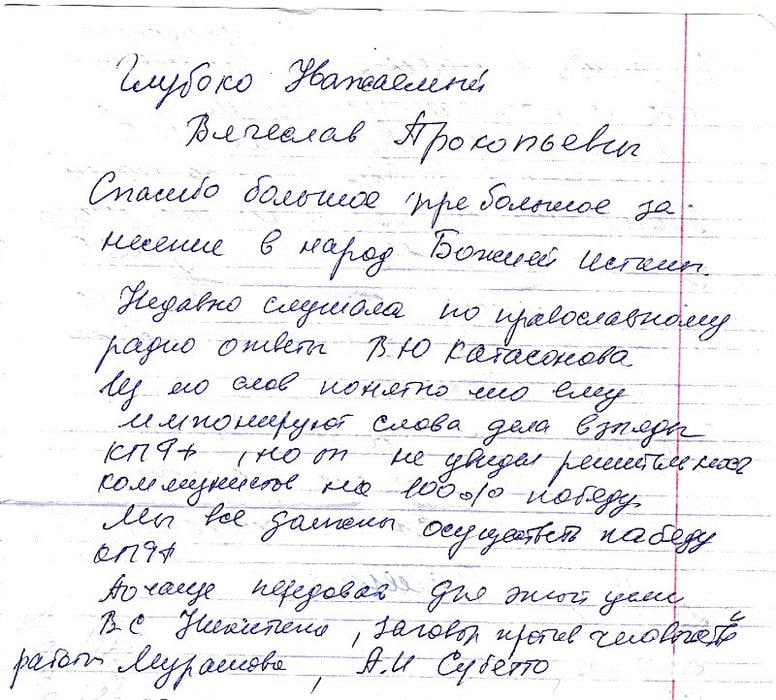 Глубоко Уважаемый
Вячеслав Прокопьевич
Спасибо большое пребольшое за
несение в народ Божией истины.
Недавно слушала по православному
радио ответы В Ю Катасонова
Из его слов понятно что ему
импонируют слова дела взгляды
КПРФ, но он не увидел решительных
коммунистов на 100% победу.
Мы все должны осуществить победу
КПРФ
для этой цели
В С Никитина, заговор против человечества
работы Мурашова, А.И Субетто